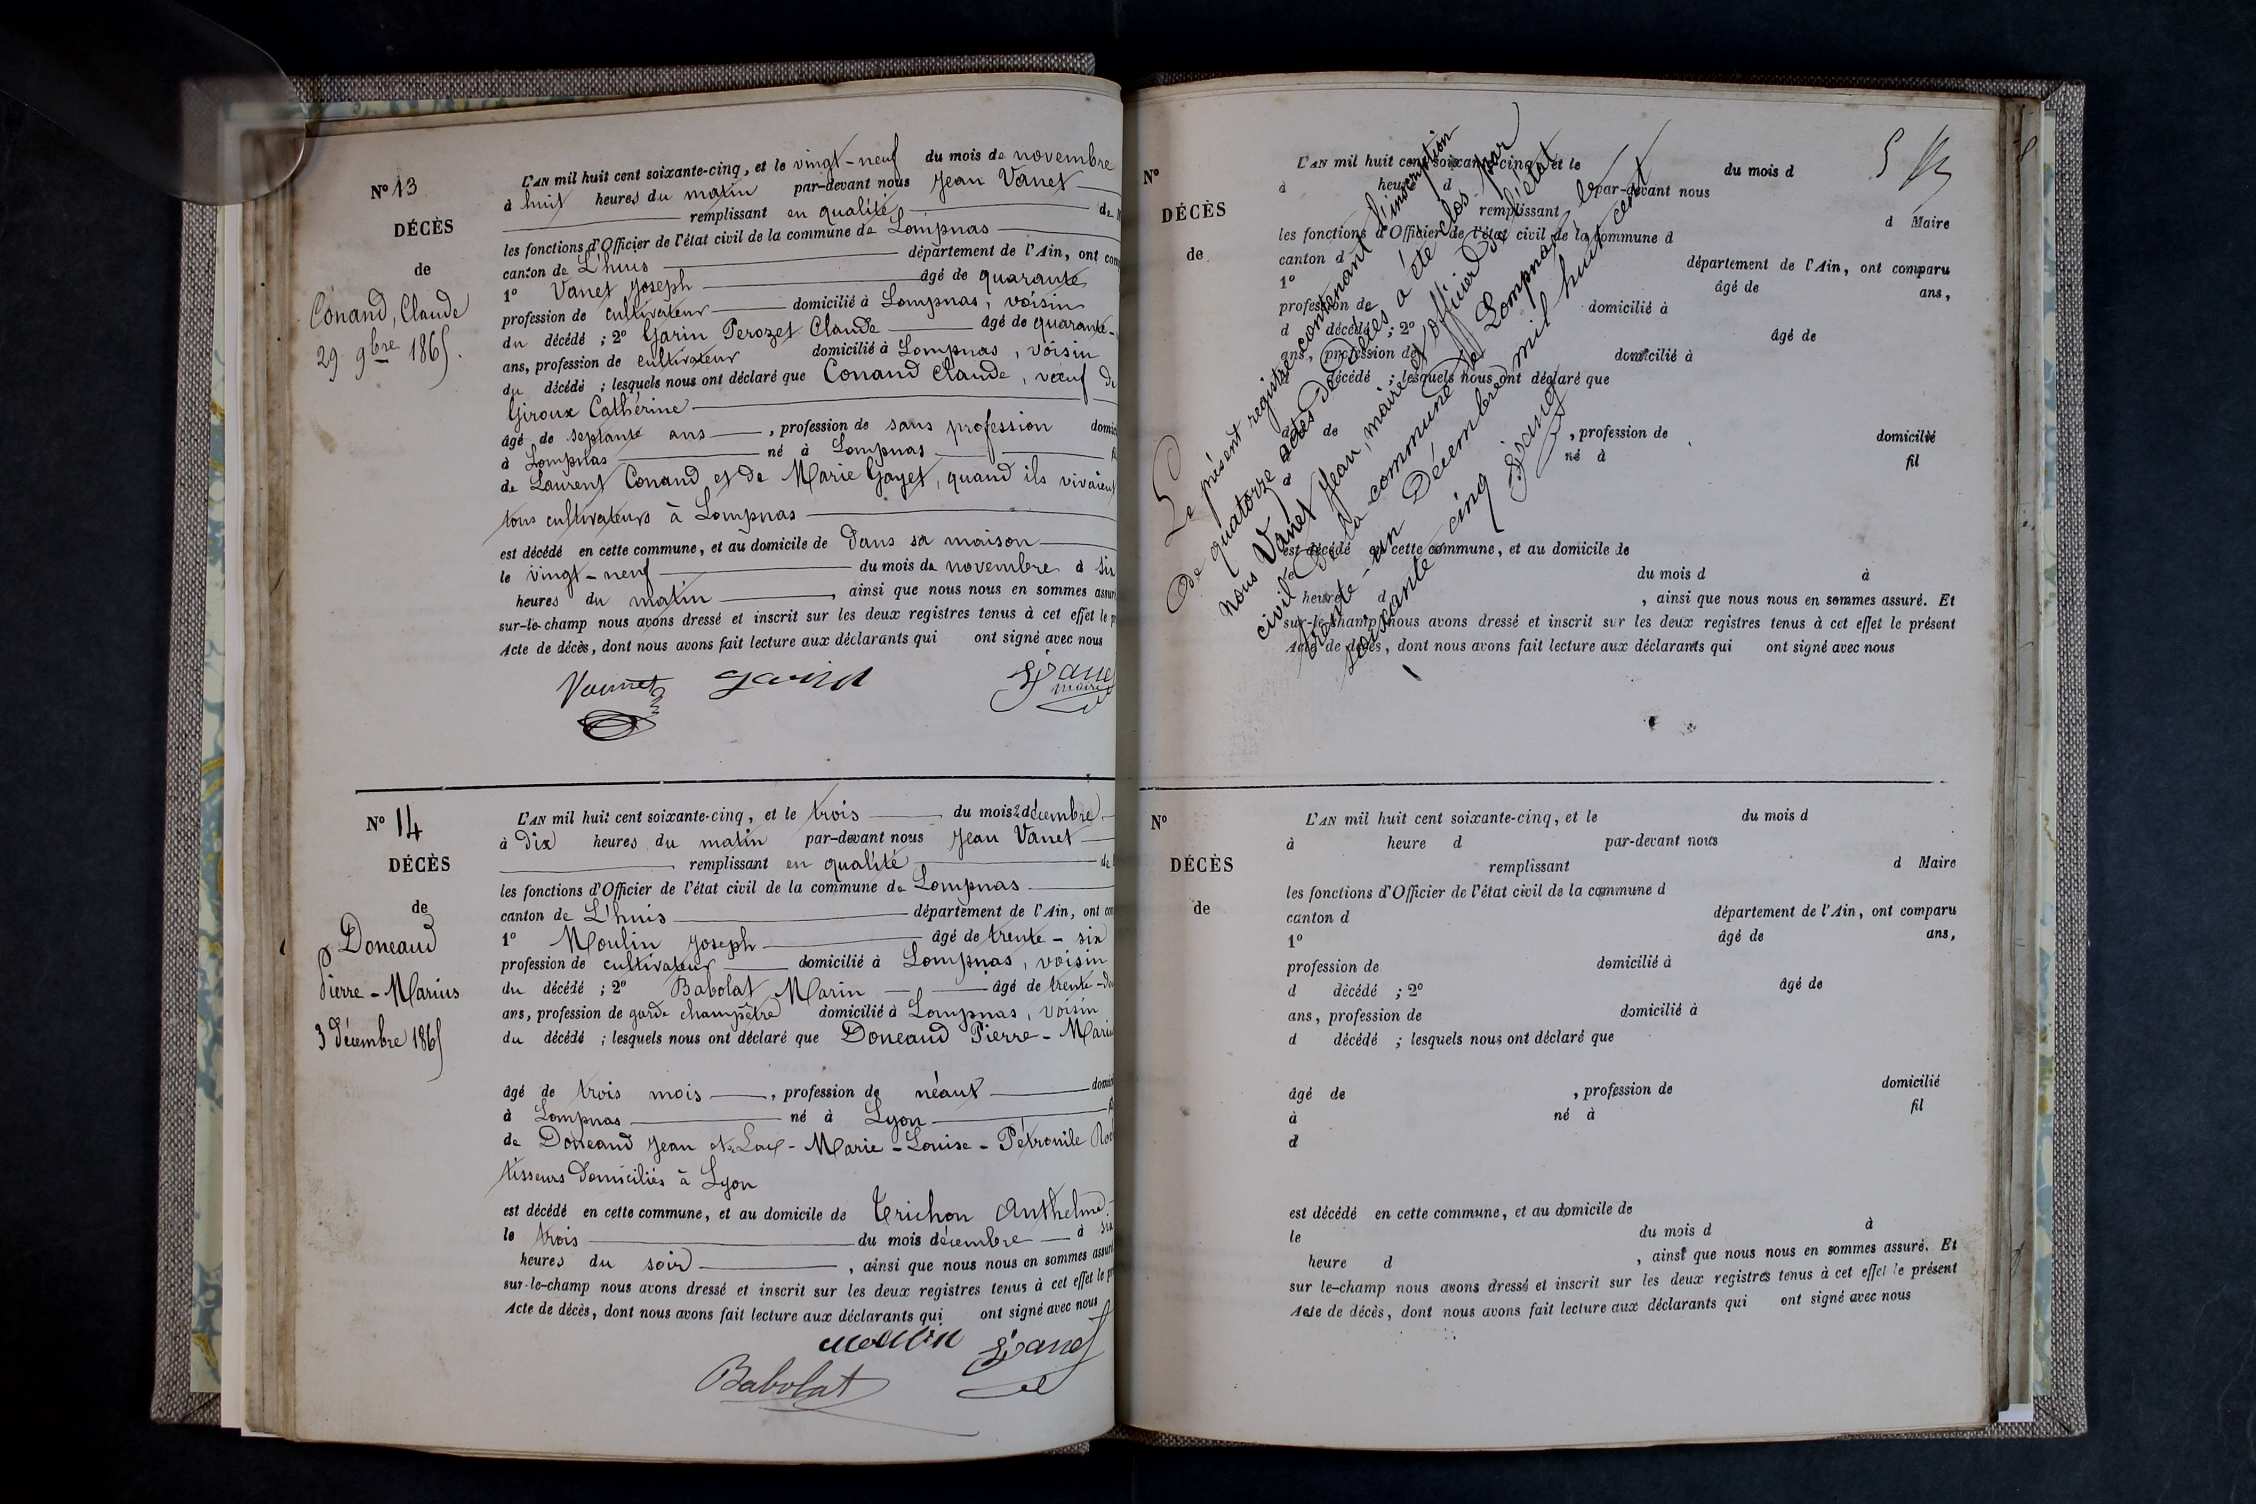 N° 13
DÉCÈS
de
Conand, Claude
29 9bre 1865.
L'AN mil huit cent soixante-cinq, et le vingt-neuf du mois de novembre
à huit heures du matin par-devant nous Jean Vanet
remplissant en qualité de
les fonctions d'Officier de l'état civil de la commune de Lompnas
canton de L'huis département de l'Ain, ont
1° Vanet Joseph âgé de quarante
profession de cultivateur domicilié à Lompnas, voisin
du décédé ; 2° Garin Perozet Claude âgé de quarante-
ans, profession de cultivateur domicilié à Lompnas, voisin
du décédé ; lesquels nous ont déclaré que Conand Claude, vœuf de
Giroux Cathérine
âgé de septante ans, profession de sans profession
à Lompnas né à Lompnas
de Laurent Conand et de Marie Gayet, quand ils vivaient
tous cultivateurs à Lompnas
est décédé en cette commune, et au domicile de dans sa maison
le vingt-neuf du mois de novembre à six
heures du matin, ainsi que nous nous en sommes
sur-le-champ nous avons dressé et inscrit sur les deux registres tenus à cet effet le
Acte de décès, dont nous avons fait lecture aux déclarants qui ont signé avec nous
Vannet garin
maire
N° 14
DÉCÈS
de
Doneaud
Pierre-Marius
3 Décembre 1865
L'AN mil huit cent soixante-cinq, et le trois du mois de décembre
à Dix heures du matin par-devant nous Jean Vanet
remplissant en qualité de
les fonctions d'Officier de l'état civil de la commune de Lompnas
canton de L'huis département de l'Ain, ont
1° Moulin Joseph âgé de trente-six
profession de cultivateur domicilié à Lompnas, voisin
du décédé ; 2° Babolat Marin âgé de trente-
ans, profession de garde champêtre domicilié à Lompnas, voisin
du décédé ; lesquels nous ont déclaré que Doneaud Pierre-
âgé de trois mois, profession de néant
à Lompnas né à Lyon
de Doneaud Jean et de Marie-Louise-Pétronile
tisseurs Domiciliés à Lyon
est décédé en cette commune, et au domicile de Trichon Anthelme.
le trois du mois décembre à six
heures du soir, ainsi que nous nous en sommes
sur-le-champ nous avons dressé et inscrit sur les deux registres tenus à cet effet le
Acte de décès, dont nous avons fait lecture aux déclarants qui ont signé avec nous
moulin Vanet
Babolat
5
N°
DÉCÈS
de
L'AN mil huit cent soixante-cinq, et le du mois d
à heure d par-devant nous
remplissant d Maire
les fonctions d'Officier de l'état civil de la commune d
canton d département de l'Ain, ont comparu
1° âgé de ans,
profession de domicilié à
d décédé ; 2° âgé de
ans, profession de domicilié à
d décédé ; lesquels nous ont déclaré que
âgé de , profession de domicilié
à né à fil
d
est décédé en cette commune, et au domicile de
du mois d à
heure d , ainsi que nous nous en sommes assuré. Et
sur-le-champ nous avons dressé et inscrit sur les deux registres tenus à cet effet le présent
Acte de décès, dont nous avons fait lecture aux déclarants qui ont signé avec nous
Le présent registre contenant l'inscription
de quatorze actes de Décès a été clos par
nous Vanet Jean, maire et officier de l'état
civil de la commune de Lompnas le
trente-un Décembre mil huit cent
soixante-cinq
N°
DÉCÈS
de
L'AN mil huit cent soixante-cinq, et le du mois d
à heure d par-devant nous
remplissant d Maire
les fonctions d'Officier de l'état civil de la commune d
canton d département de l'Ain, ont comparu
1° âgé de ans,
profession de domicilié à
d décédé ; 2° âgé de
ans, profession de domicilié à
d décédé ; lesquels nous ont déclaré que
âgé de , profession de domicilié
à né à fil
d
est décédé en cette commune, et au domicile de
le du mois d à
heure d , ainsi que nous nous en sommes assuré. Et
sur le-champ nous avons dressé et inscrit sur les deux registres tenus à cet effet le présent
Acte de décès, dont nous avons fait lecture aux déclarants qui ont signé avec nous